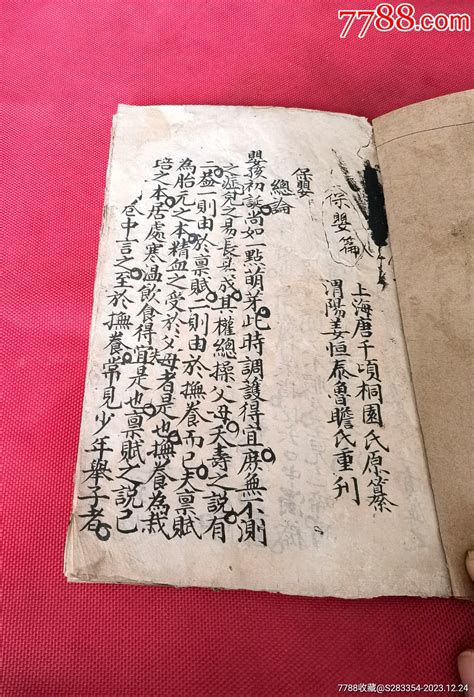 7788.com
保嬰篇
上海唐千頃桐園氏原纂
渭陽姜恒泰魯瞻氏重刊
保嬰
總論
嬰孩初誕尚如一點萌芽此時調護得宜庶無不測
之症兒之易長具成其權總操父母夭壽之說有
二益一則由於禀賦一則由於撫養而已夫禀賦
為胎元之本精血之受於父母者是也撫養為裁
培之本居處寒温飲食得失宜是也禀賦之說已
卷中言之至於撫養常見少年舉子者
7788收藏@S283354-2023.12.24